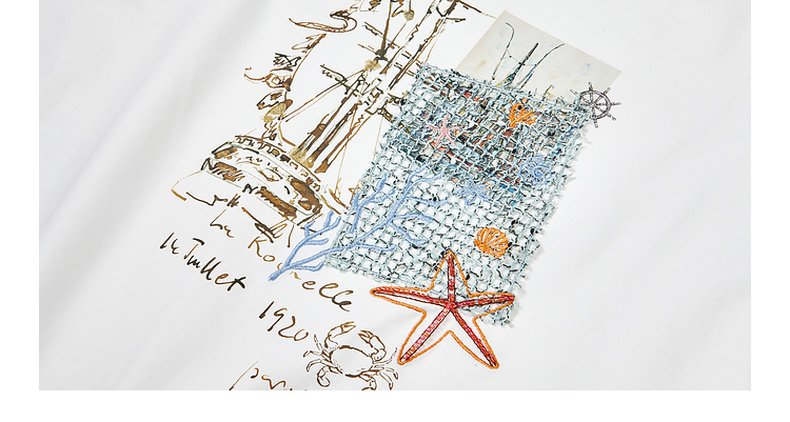 La Rochelle
14 Juillet
1920